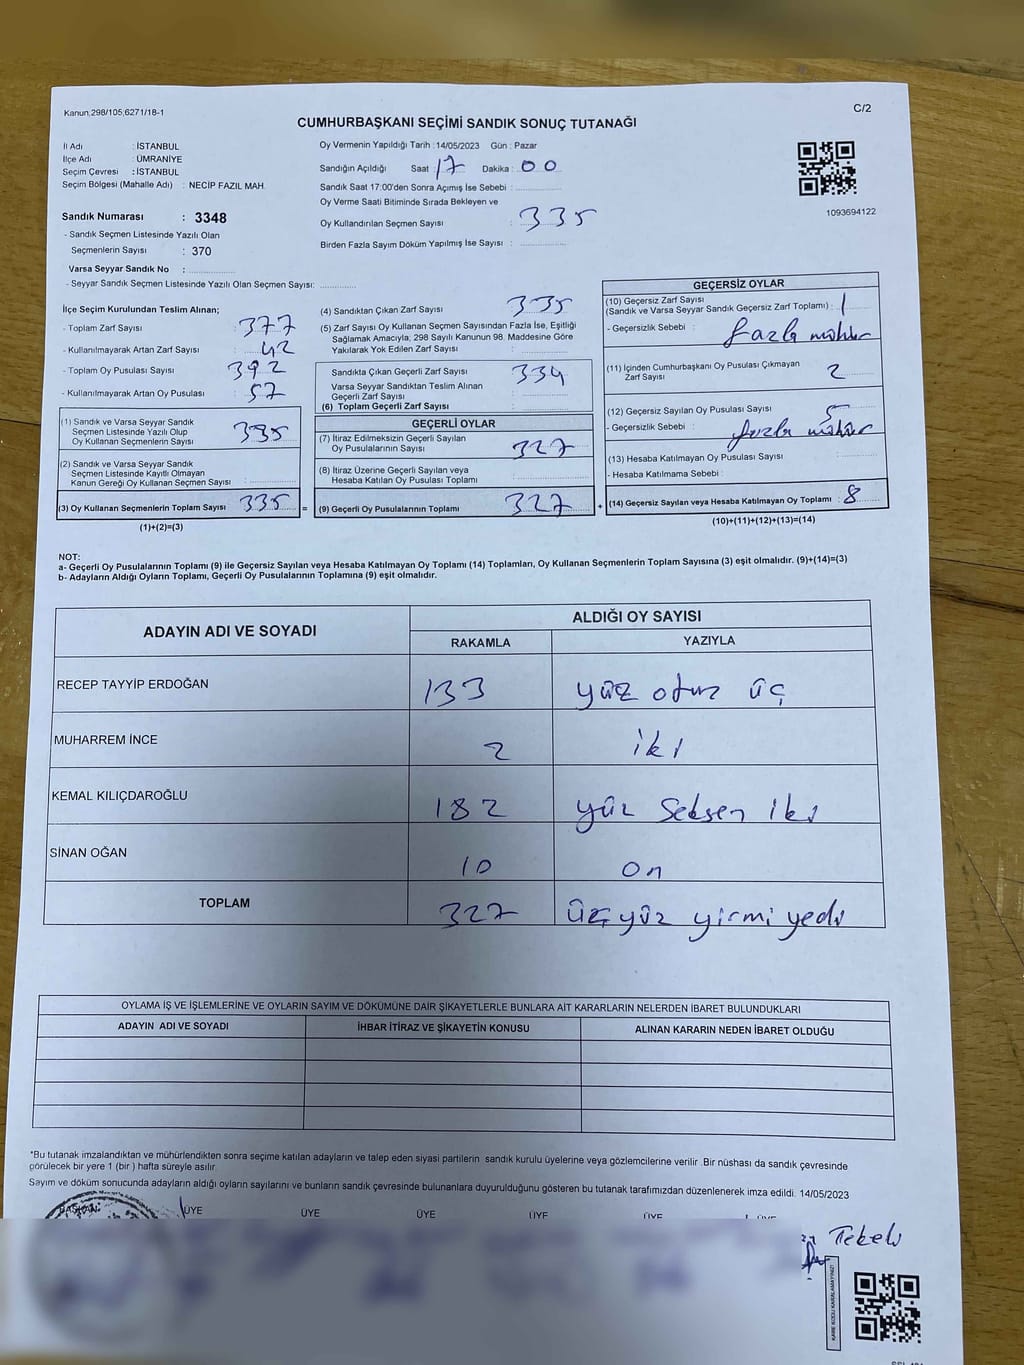 Kanun;298/105;6271/18-1
C/2
CUMHURBAŞKANI SEÇİMİ SANDIK SONUÇ TUTANAĞI
İl Adı : İSTANBUL
İlçe Adı : ÜMRANİYE
Seçim Çevresi : İSTANBUL
Seçim Bölgesi (Mahalle Adı) : NECİP FAZIL MAH.
Sandık Numarası : 3348
- Sandık Seçmen Listesinde Yazılı Olan
Seçmenlerin Sayısı : 370
Varsa Seyyar Sandık No :
- Seyyar Sandık Seçmen Listesinde Yazılı Olan Seçmen Sayısı:
Oy Vermenin Yapıldığı Tarih : 14/05/2023 Gün : Pazar
Sandığın Açıldığı Saat : 17 Dakika : 00
Sandık Saat 17:00'den Sonra Açımış İse Sebebi :
Oy Verme Saati Bitiminde Sırada Bekleyen ve
Oy Kullandırılan Seçmen Sayısı : 335
Birden Fazla Sayım Döküm Yapılmış İse Sayısı :
1093694122
İlçe Seçim Kurulundan Teslim Alınan;
- Toplam Zarf Sayısı : 377
- Kullanılmayarak Artan Zarf Sayısı : 42
- Toplam Oy Pusulası Sayısı : 392
- Kullanılmayarak Artan Oy Pusulası : 57
(1) Sandık ve Varsa Seyyar Sandık
Seçmen Listesinde Yazılı Olup
Oy Kullanan Seçmenlerin Sayısı : 335
(2) Sandık ve Varsa Seyyar Sandık
Seçmen Listesinde Kayıtlı Olmayan
Kanun Gereği Oy Kullanan Seçmen Sayısı :
(3) Oy Kullanan Seçmenlerin Toplam Sayısı : 335 =
(1)+(2)=(3)
(4) Sandıktan Çıkan Zarf Sayısı : 335
(5) Zarf Sayısı Oy Kullanan Seçmen Sayısından Fazla İse, Eşitliği
Sağlamak Amacıyla; 298 Sayılı Kanunun 98. Maddesine Göre
Yakılarak Yok Edilen Zarf Sayısı :
Sandıkta Çıkan Geçerli Zarf Sayısı : 334
Varsa Seyyar Sandıktan Teslim Alınan
Geçerli Zarf Sayısı :
(6) Toplam Geçerli Zarf Sayısı :
GEÇERLİ OYLAR
(7) İtiraz Edilmeksizin Geçerli Sayılan
Oy Pusulalarının Sayısı : 327
(8) İtiraz Üzerine Geçerli Sayılan veya
Hesaba Katılan Oy Pusulası Toplamı :
(9) Geçerli Oy Pusulalarının Toplamı : 327 +
GEÇERSİZ OYLAR
(10) Geçersiz Zarf Sayısı
(Sandık ve Varsa Seyyar Sandık Geçersiz Zarf Toplamı) : 1
- Geçersizlik Sebebi : fazla mühür
(11) İçinden Cumhurbaşkanı Oy Pusulası Çıkmayan
Zarf Sayısı : 2
(12) Geçersiz Sayılan Oy Pusulası Sayısı : 5
- Geçersizlik Sebebi : fazla mühür
(13) Hesaba Katılmayan Oy Pusulası Sayısı :
- Hesaba Katılmama Sebebi :
(14) Geçersiz Sayılan veya Hesaba Katılmayan Oy Toplamı : 8
(10)+(11)+(12)+(13)=(14)
NOT:
a- Geçerli Oy Pusulalarının Toplamı (9) ile Geçersiz Sayılan veya Hesaba Katılmayan Oy Toplamı (14) Toplamları, Oy Kullanan Seçmenlerin Toplam Sayısına (3) eşit olmalıdır. (9)+(14)=(3)
b- Adayların Aldığı Oyların Toplamı, Geçerli Oy Pusulalarının Toplamına (9) eşit olmalıdır.
ADAYIN ADI VE SOYADI ALDIĞI OY SAYISI
RAKAMLA YAZIYLA
RECEP TAYYİP ERDOĞAN 133 yüz otuz üç
MUHARREM İNCE 2 iki
KEMAL KILIÇDAROĞLU 182 yüz seksen iki
SİNAN OĞAN 10 on
TOPLAM 327 üç yüz yirmi yedi
OYLAMA İŞ VE İŞLEMLERİNE VE OYLARIN SAYIM VE DÖKÜMÜNE DAİR ŞİKAYETLERLE BUNLARA AİT KARARLARIN NELERDEN İBARET BULUNDUKLARI
ADAYIN ADI VE SOYADI İHBAR İTİRAZ VE ŞİKAYETİN KONUSU ALINAN KARARIN NEDEN İBARET OLDUĞU
*Bu tutanak imzalandıktan ve mühürlendikten sonra seçime katılan adayların ve talep eden siyasi partilerin sandık kurulu üyelerine veya gözlemcilerine verilir .Bir nüshası da sandık çevresinde
görülecek bir yere 1 (bir ) hafta süreyle asılır.
Sayım ve döküm sonucunda adayların aldığı oyların sayılarını ve bunların sandık çevresinde bulunanlara duyurulduğunu gösteren bu tutanak tarafımızdan düzenlenerek imza edildi. 14/05/2023
BAŞKAN ÜYE ÜYE ÜYE ÜYE ÜYE ÜYE
Tekeli
KARE KODU KARALAMAYINIZ!